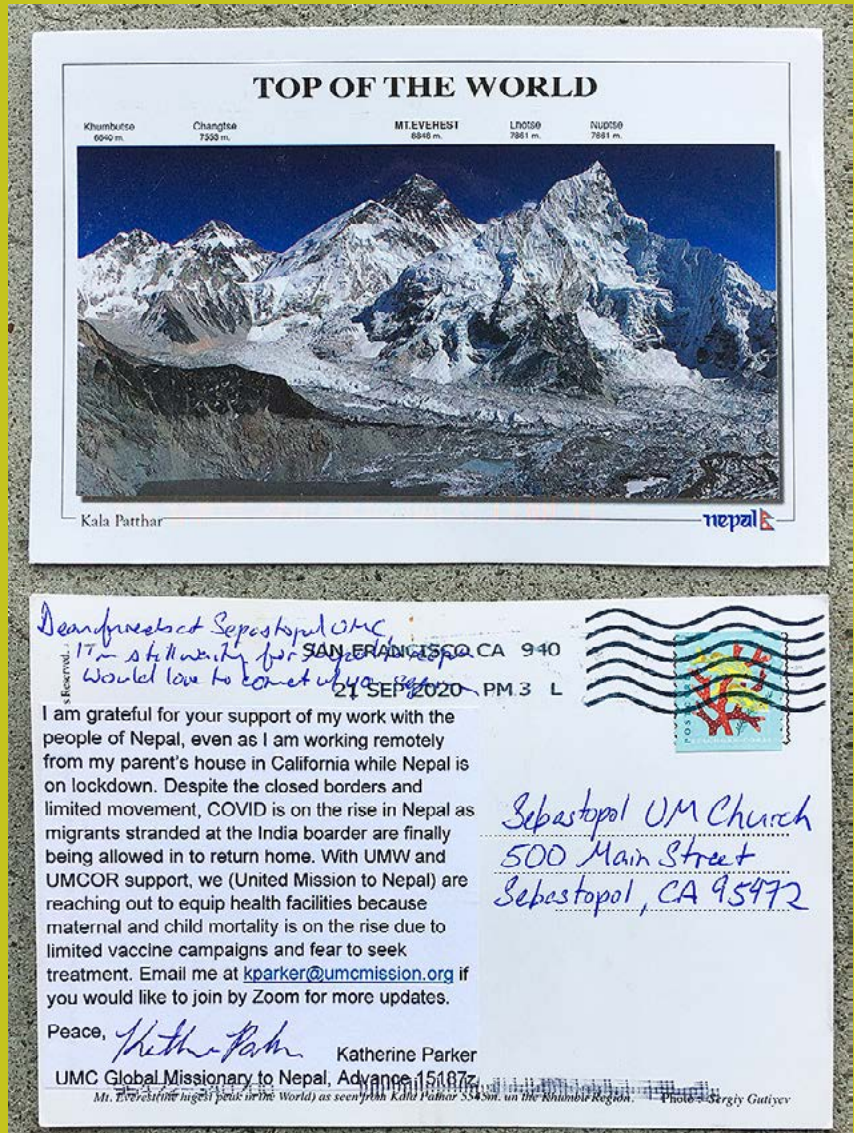 TOP OF THE WORLD
Khumbutse Changtse MT.EVEREST Lhotse Nuptse
6640 m. 7553 m. 8848 m. 7861 m. 7861 m.
Kala Patthar nepal
Dear friends at Sepastopul UMC,
I'm still waiting for
Would love to
s Reserved.
SAN FRANCISCO CA 940
21 SEP 2020 PM 3 L
I am grateful for your support of my work with the
people of Nepal, even as I am working remotely
from my parent's house in California while Nepal is
on lockdown. Despite the closed borders and
limited movement, COVID is on the rise in Nepal as
migrants stranded at the India boarder are finally
being allowed in to return home. With UMW and
UMCOR support, we (United Mission to Nepal) are
reaching out to equip health facilities because
maternal and child mortality is on the rise due to
limited vaccine campaigns and fear to seek
treatment. Email me at kparker@umcmission.org if
you would like to join by Zoom for more updates.
Peace, Katherine Parker
Katherine Parker
UMC Global Missionary to Nepal, Advance 15187z
Mt. Everest(the higest peak in the World) as seen from Kala Pathar 5545m. un the Khumbu Region. Photo : Sergiy Gutiyev
Sebastopol UM Church
500 Main Street
Sebastopol, CA 95472